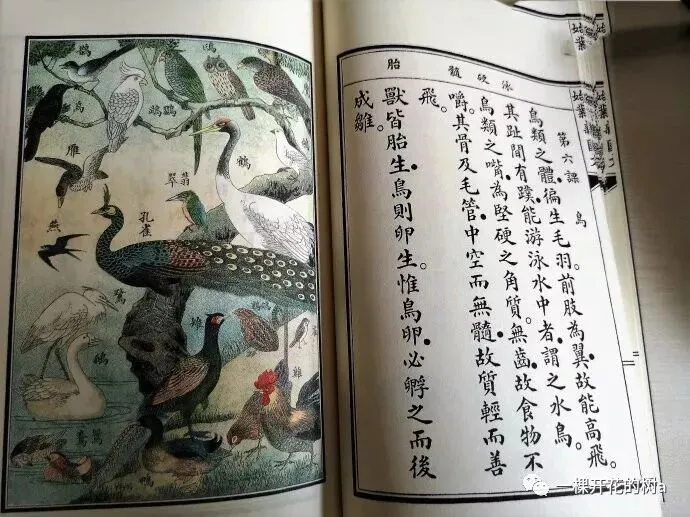 泳 硬 髓 胎
第六課 鳥
鳥類之體徧生毛羽。前肢為翼•故能高飛。
其趾間有蹼•能游泳水中者•謂之水鳥。
鳥類之嘴•為堅硬之角質。無齒•故食物不
嚼。其骨及毛管•中空而無髓•故質輕而善
飛。
獸皆胎生•鳥則卵生。惟鳥卵•必孵之而後
成雛。
鸚鵡
雁
鶴
翡翠
孔雀
燕
鷺
雉
雞
鴨
一棵开花的树a